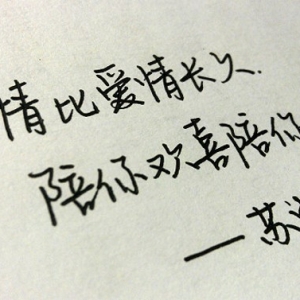 情比爱情长久.
陪你欢喜陪你
—苏